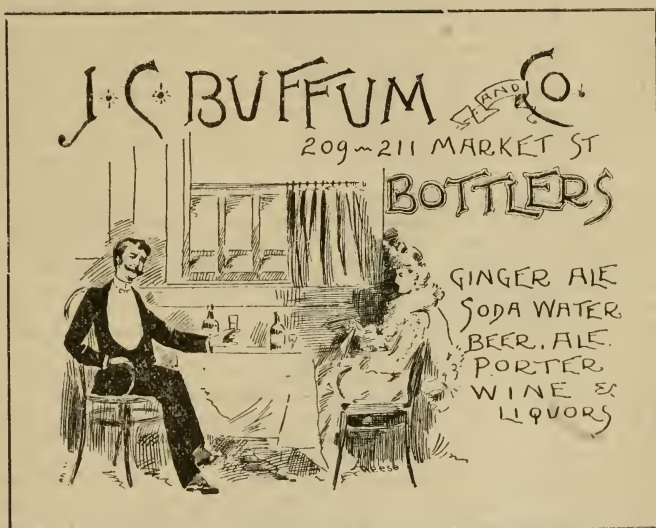 J. C. BUFFUM AND Co.
209~211 MARKET ST
BOTTLERS
GINGER ALE
SODA WATER
BEER. ALE.
PORTER
WINE &
LIQUORS